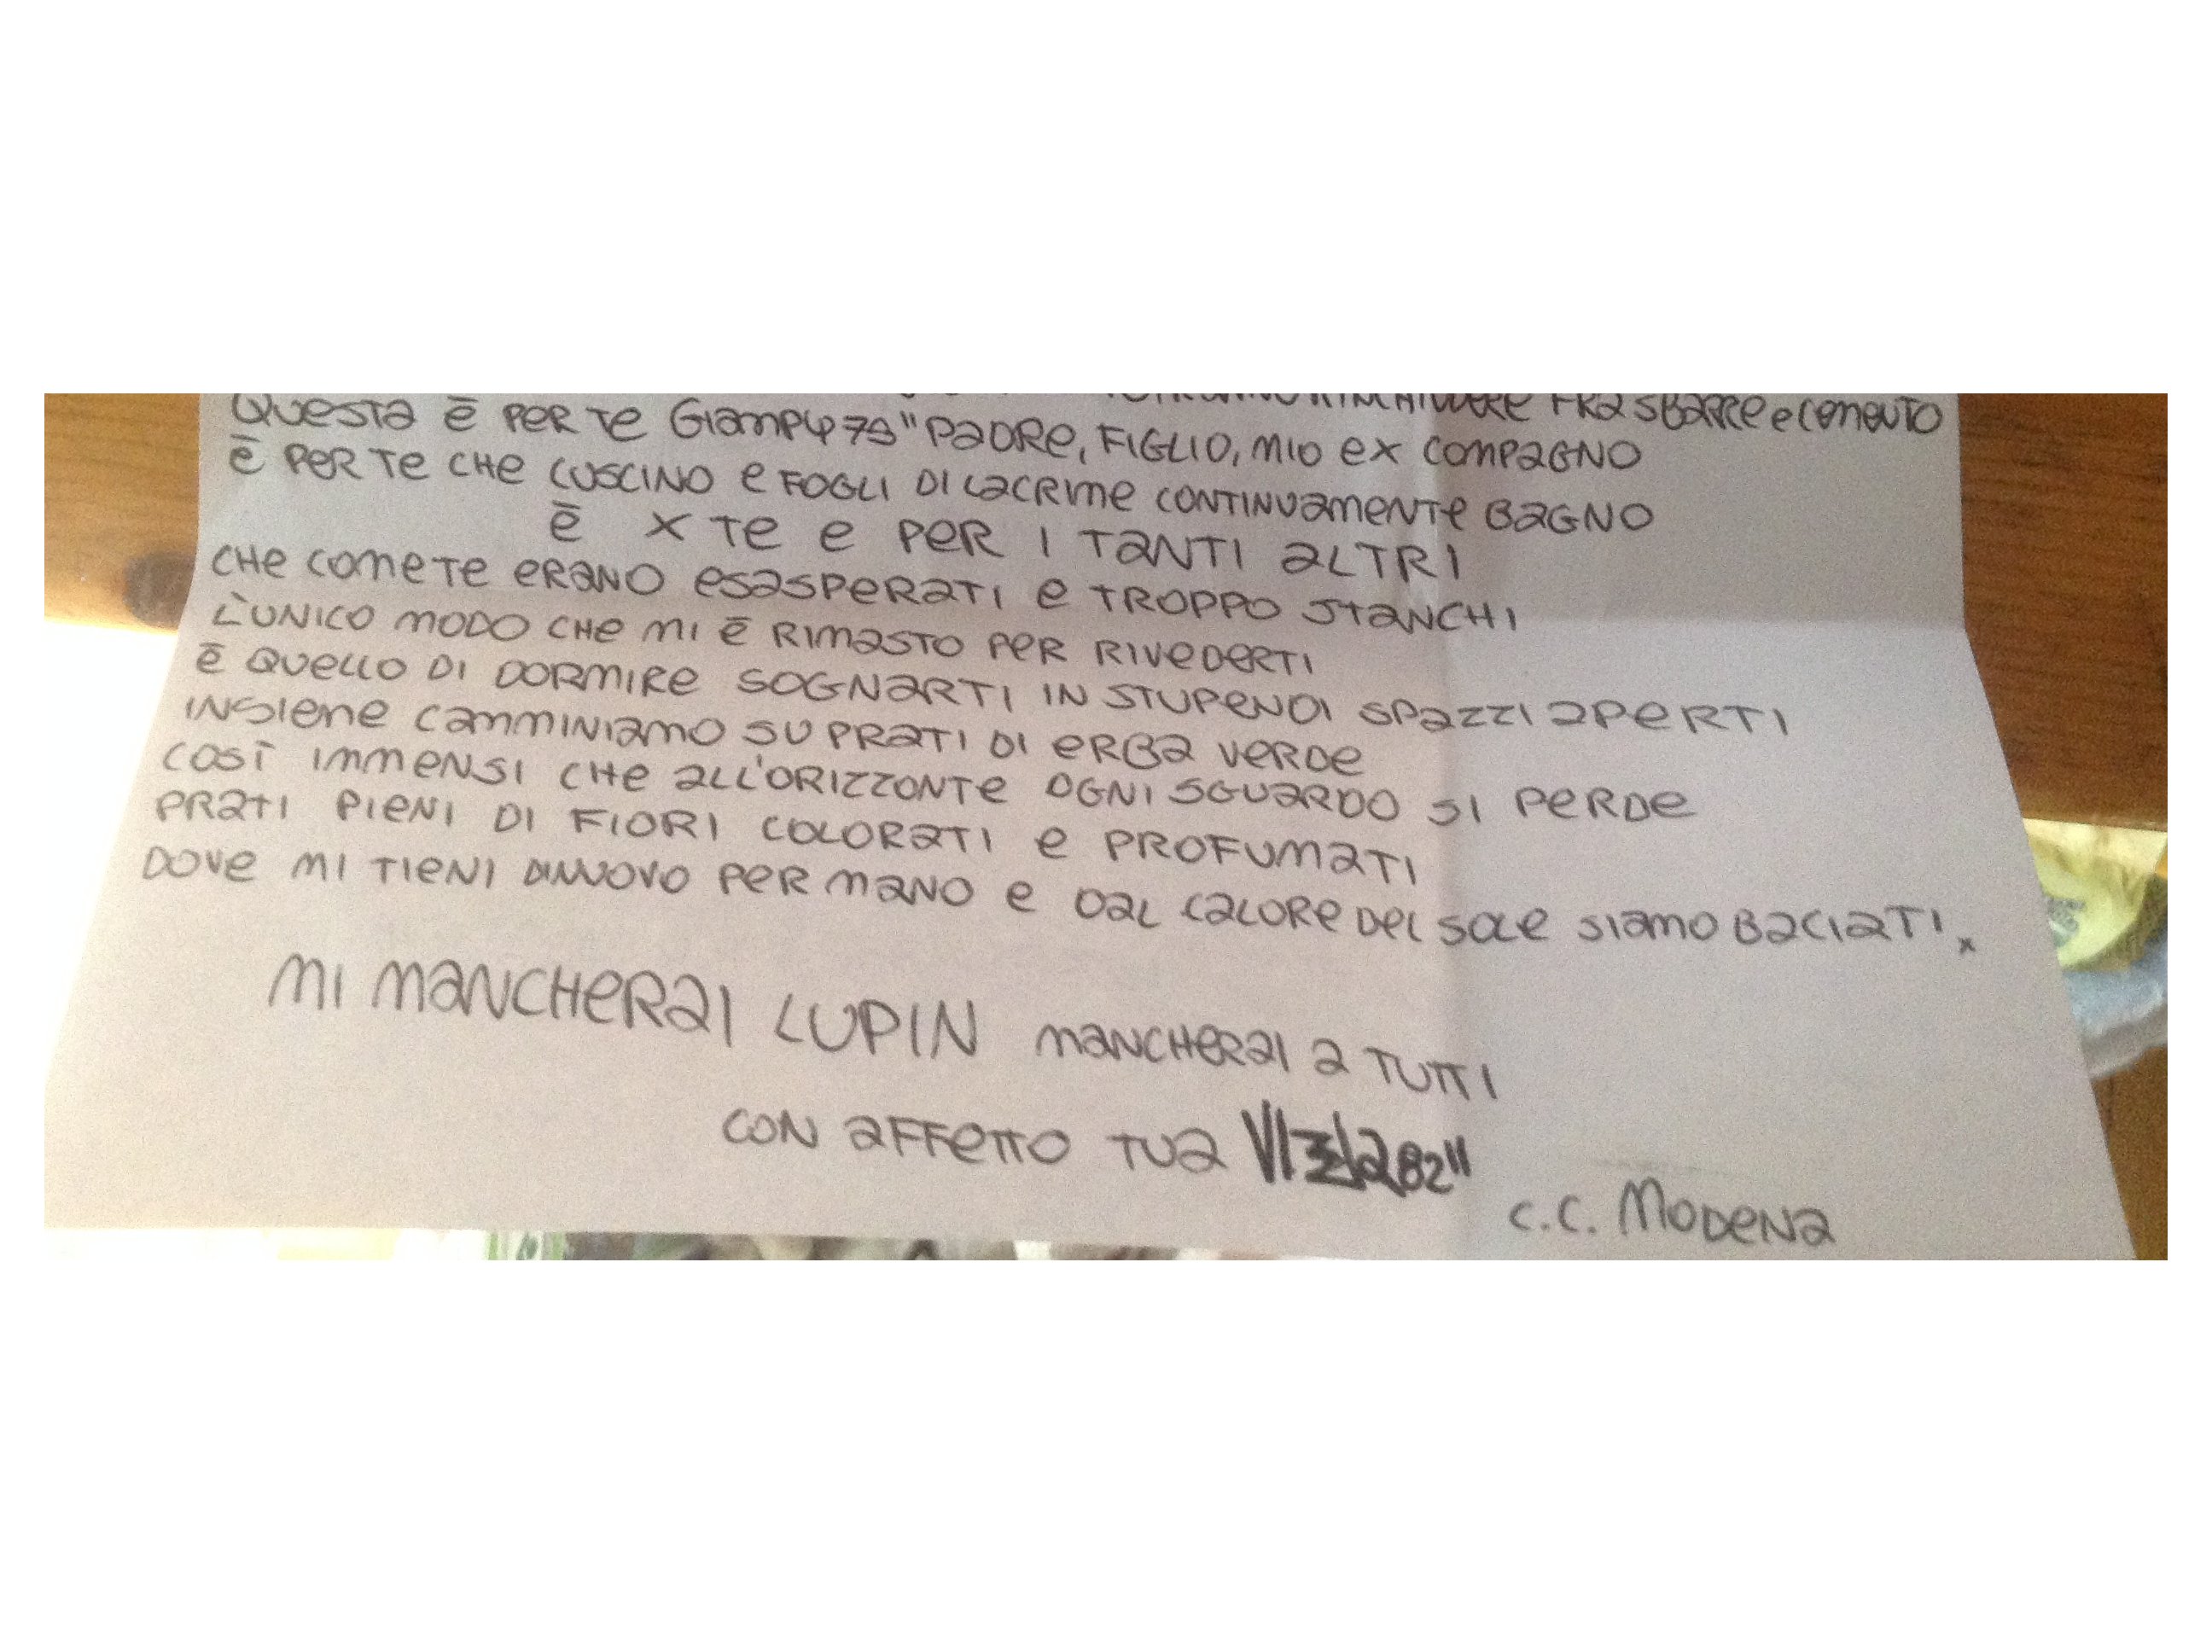 RINCHIUDERE FRA SBARRE e CEMENTO
QUESTA è PER TE GIAMPY79" PADRE, FIGLIO, MIO EX COMPAGNO
è PER TE CHE CUSCINO e FOGLI DI LACRIME CONTINUAMENTE BAGNO
è X TE e PER I TANTI ALTRI
CHE COME TE ERANO ESASPERATI e TROPPO STANCHI
L'UNICO MODO CHE MI è RIMASTO PER RIVEDERTI
è QUELLO DI DORMIRE SOGNARTI IN STUPENDI SPAZZI APERTI
INSIEME CAMMINIAMO SU PRATI DI ERBA VERDE
COSÌ IMMENSI CHE ALL'ORIZZONTE OGNI SGUARDO SI PERDE
PRATI PIENI DI FIORI COLORATI e PROFUMATI
DOVE MI TIENI DINUOVO PER MANO e DAL CALORE DEL SOLE SIAMO BACIATI.
MI MANCHERAI LUPIN MANCHERAI A TUTTI
CON AFFETTO TUA
C.C. MODENA